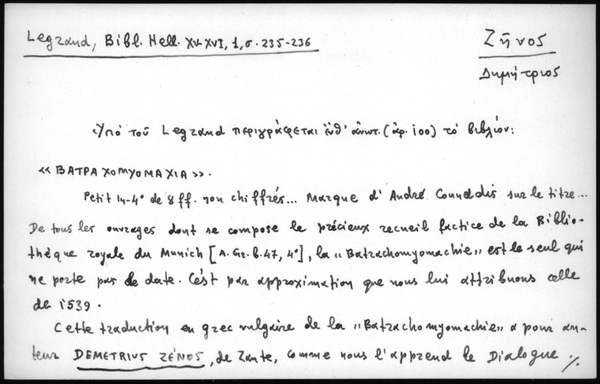 Legrand, Bibl. Hell. XV-XVI, 1, σ. 235-236
Ζῆνος
Δημήτριος
Ὑπό τοῦ Legrand περιγράφεται ἔνθ' ἀνωτ. (ἀρ. 100) τό βιβλίον:
«ΒΑΤΡΑΧΟΜΥΟΜΑΧΙΑ».
Petit in-4° de 8 ff. non chiffrés... Marque d'André Counadis sur le titre...
De tous les ouvrages dont se compose le précieux recueil factice de la Biblio-
thèque royale du Munich [A. Gr. b. 47, 4°], la «Batrachomyomachie» est le seul qui
ne porte pas de date. C'est par approximation que nous lui attribuons celle
de 1539.
Cette traduction en grec vulgaire de la «Batrachomyomachie» a pour au-
teur DEMETRIUS ZÉNOS, de Zante, comme nous l'apprend le Dialogue ./.